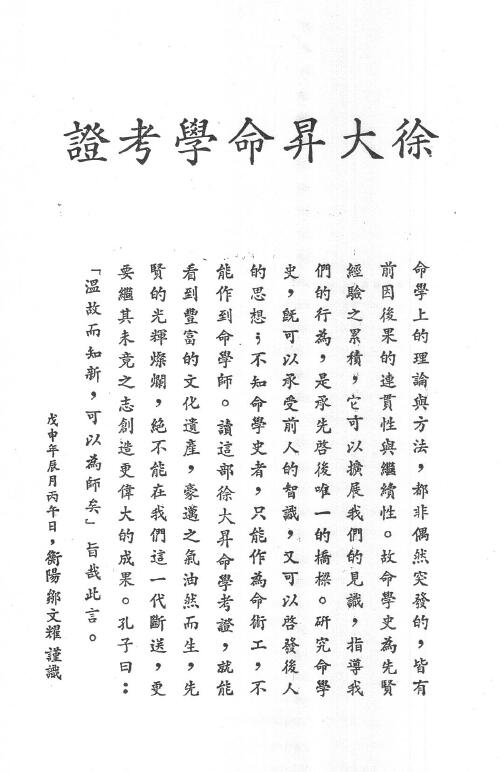 徐大昇命學考證
命學上的理論與方法，都非偶然突發的，皆有
前因後果的連貫性與繼續性。故命學史為先賢
經驗之累積，它可以擴展我們的見識，指導我
們的行為，是承先啓後唯一的橋樑。研究命學
史，既可以承受前人的智識，又可以啓發後人
的思想；不知命學史者，只能作為命術工，不
能作到命學師。讀這部徐大昇命學考證，就能
看到豐富的文化遺產，豪邁之氣油然而生，先
賢的光輝燦爛，絕不能在我們這一代斷送，更
要繼其未竟之志創造更偉大的成果。孔子曰：
「溫故而知新，可以為師矣」旨哉此言。
戊申年辰月丙午日，衡陽鄒文耀謹識